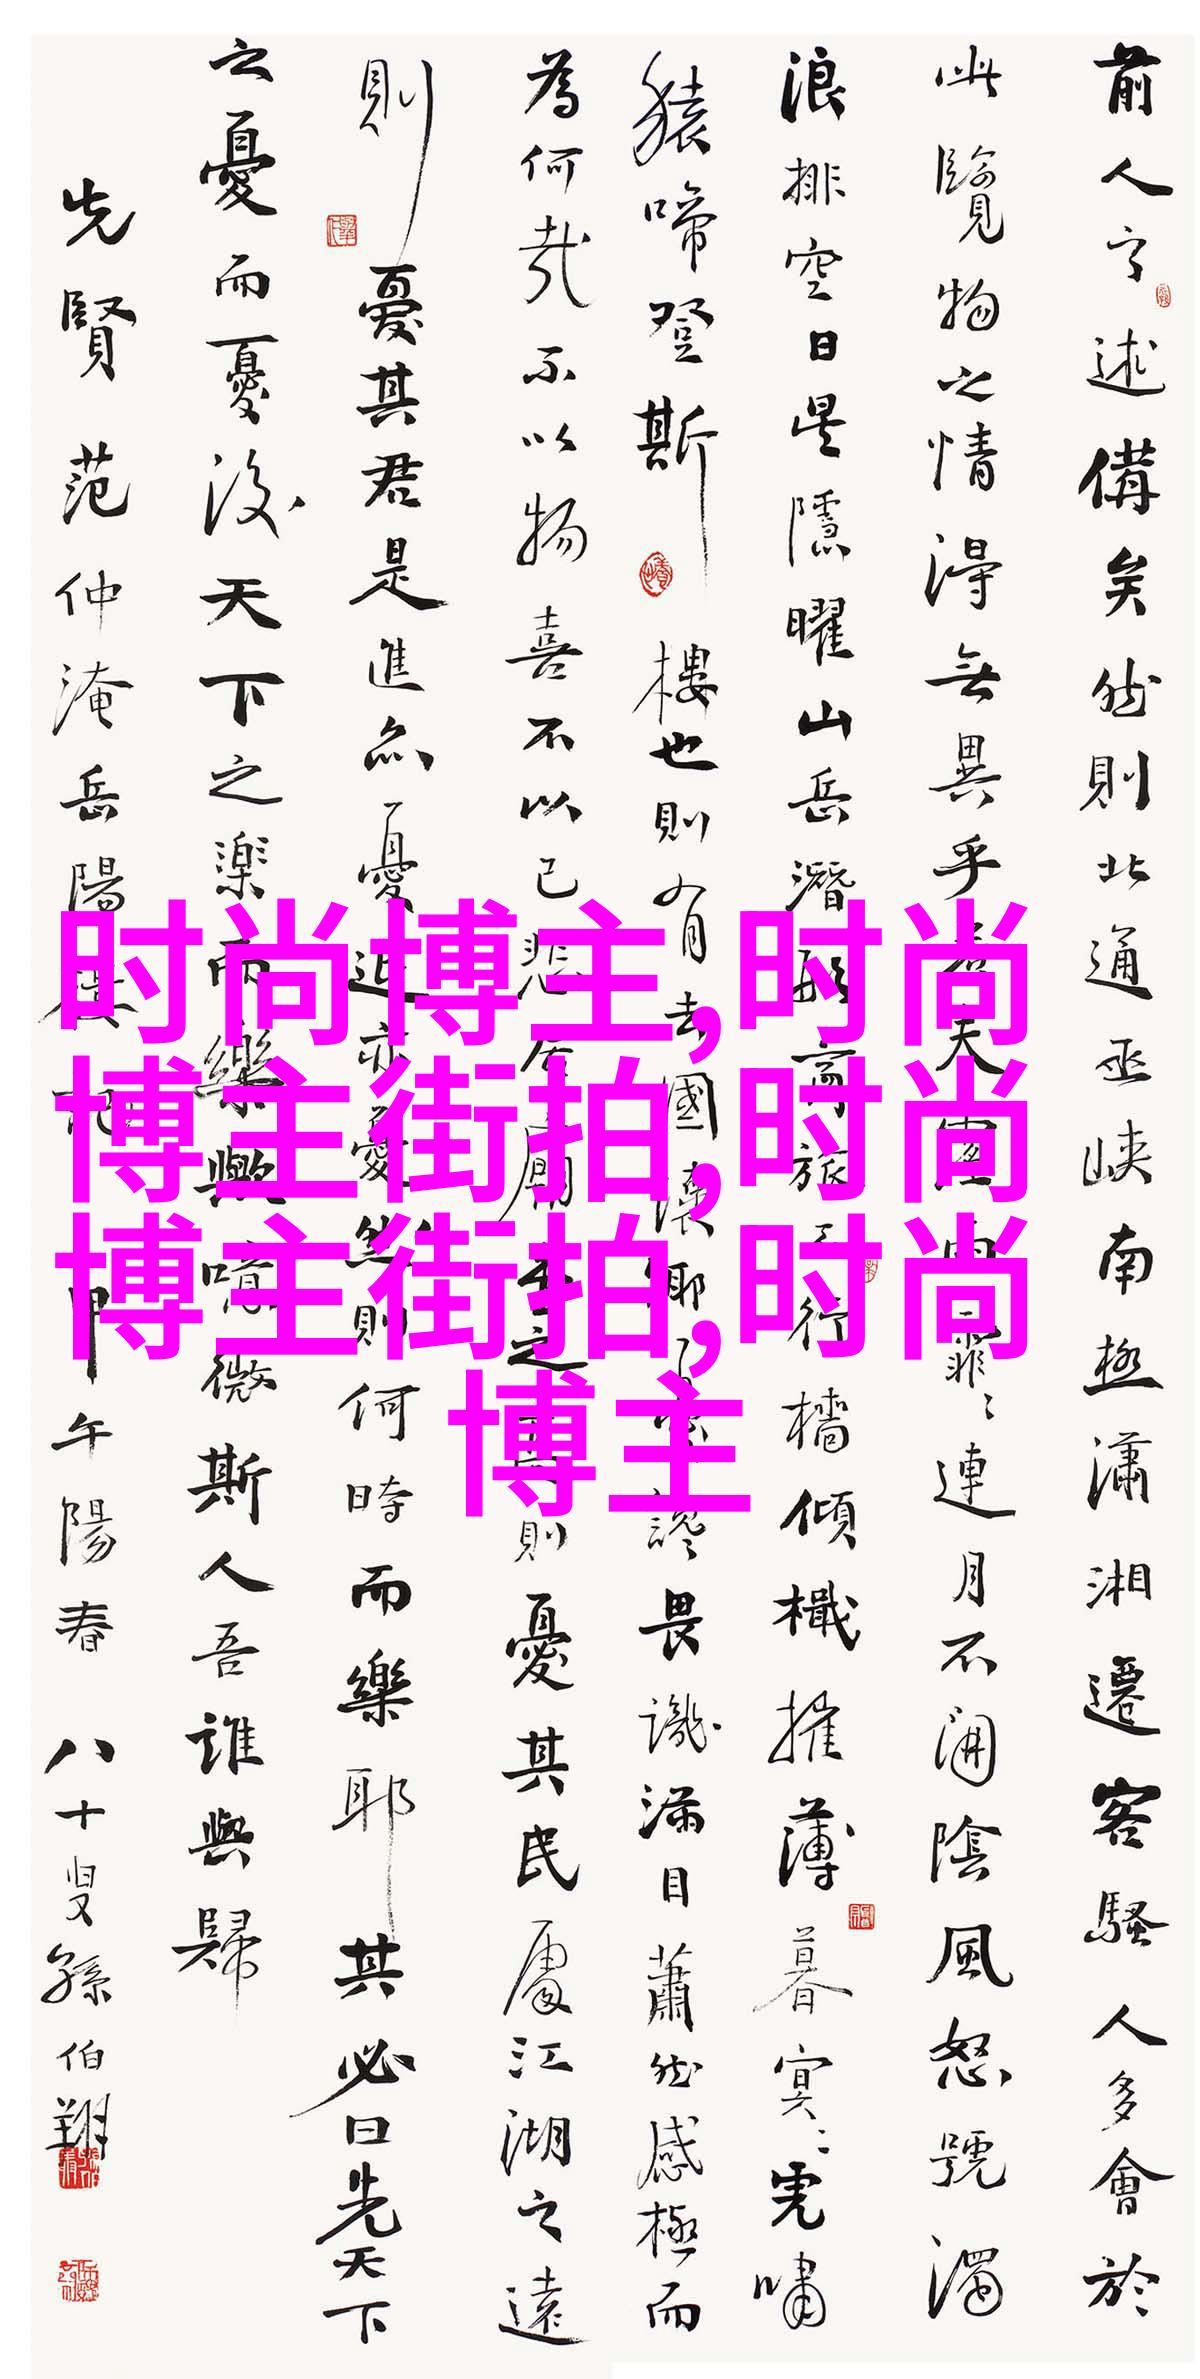 前人述備矣然則北通巫峽南極瀟湘遷客騷人多會於
此覽物之情得無異乎若夫霪雨霏〻連月不開陰風怒號濁
浪排空日星隱曜山岳潛形商旅不行檣傾檝摧薄暮冥〻虎嘯
猿啼登斯樓也則有去國懷鄉憂讒畏譏滿目蕭然感極而
為何哉不以物喜不以己悲居廟堂之高則憂其民處江湖之遠
則憂其君是進亦憂退亦憂然則何時而樂耶其必曰先天下
之憂而憂後天下之樂而樂歟噫微斯人吾誰與歸
先賢范仲淹岳陽樓記甲午陽春 八十叟孫伯翔
时尚博主,时尚
博主街拍,时尚
博主街拍,时尚
博主